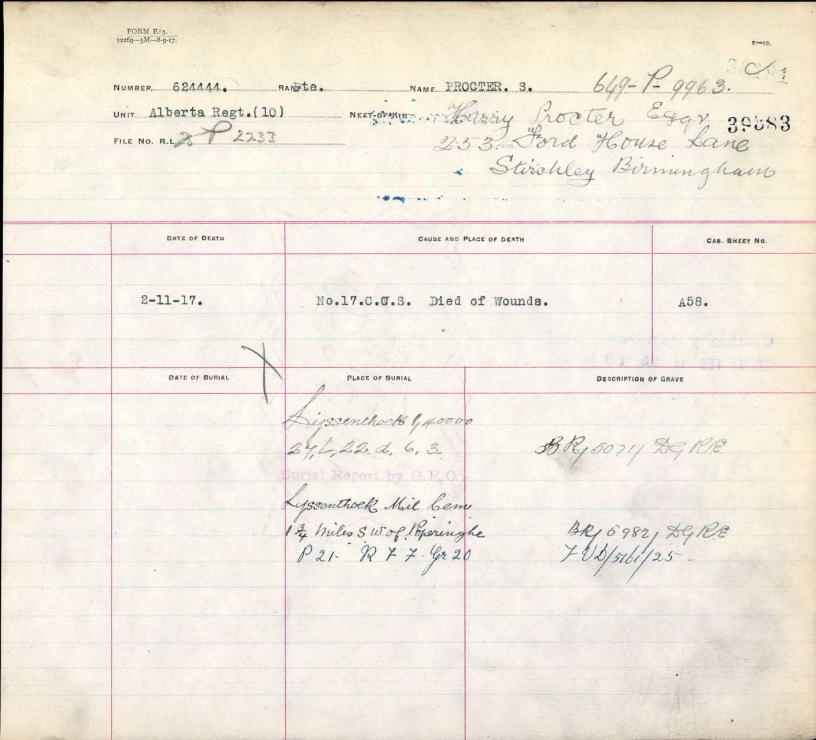 FORM E13.
12269—5M—8-9-17.
NUMBER 624444. RANK Pte. NAME PROCTER. S. 649-P-9963.
UNIT Alberta Regt.(10) NEXT-OF-KIN Harry Procter Esqr 39583
FILE NO. R.L. 25 P 2233 253 Ford House Lane
Stirchley Birmingham
DATE OF DEATH CAUSE AND PLACE OF DEATH CAS. SHEET NO.
2-11-17. No.17.C.C.S. Died of Wounds. A58.
DATE OF BURIAL PLACE OF BURIAL DESCRIPTION OF GRAVE
Lijssenthoek 1/40000
27, L, 22. d. 6. 3. BR/5071/ DGR&E
Burial Report by G.R.C.
Lyssenthoek Mil Cem
1¾ Miles S W of Poperinghe BR/6982/ DGR&E
P 21- R 7 7 Gr 20 7-VD/5161/25-